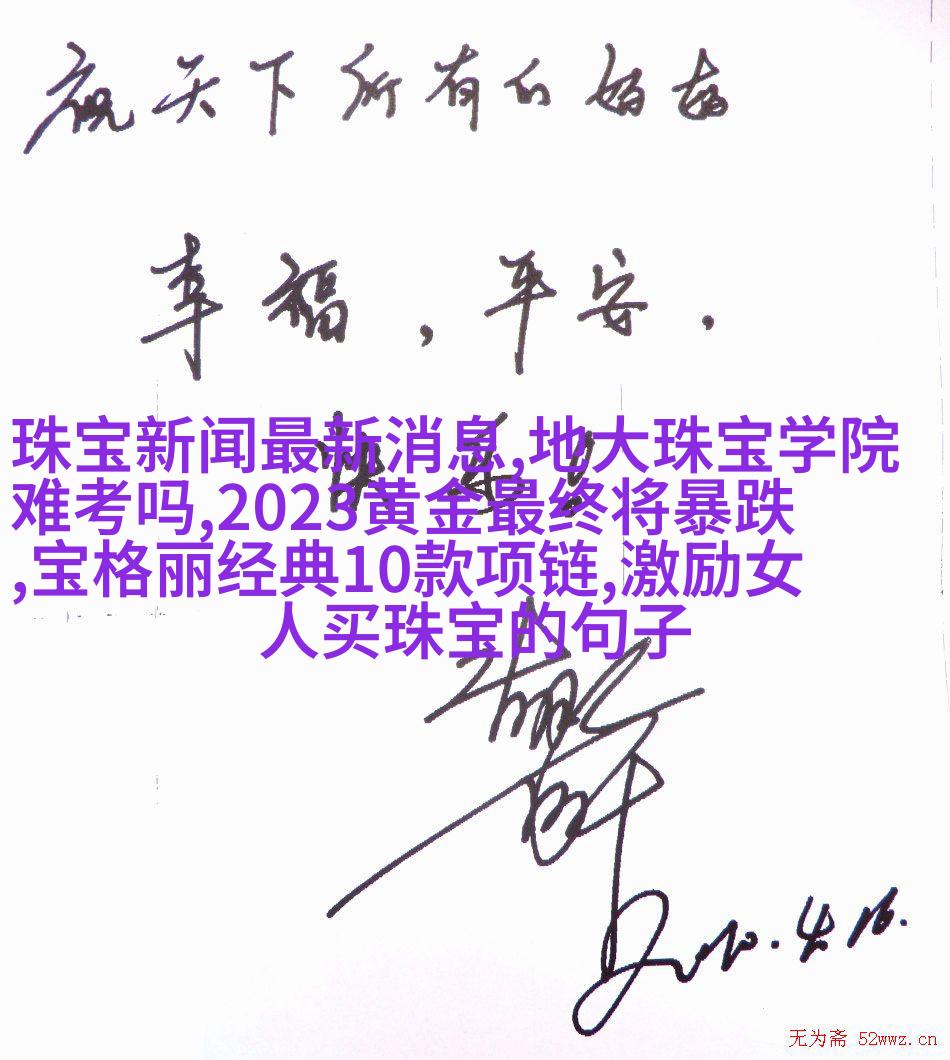 祝天下所有的妈妈
幸福，平安，
快乐！
珠宝新闻最新消息,地大珠宝学院
难考吗,2023黄金最终将暴跌
,宝格丽经典10款项链,激励女
人买珠宝的句子
2010.4.16.
无为斋 52wwz.cn